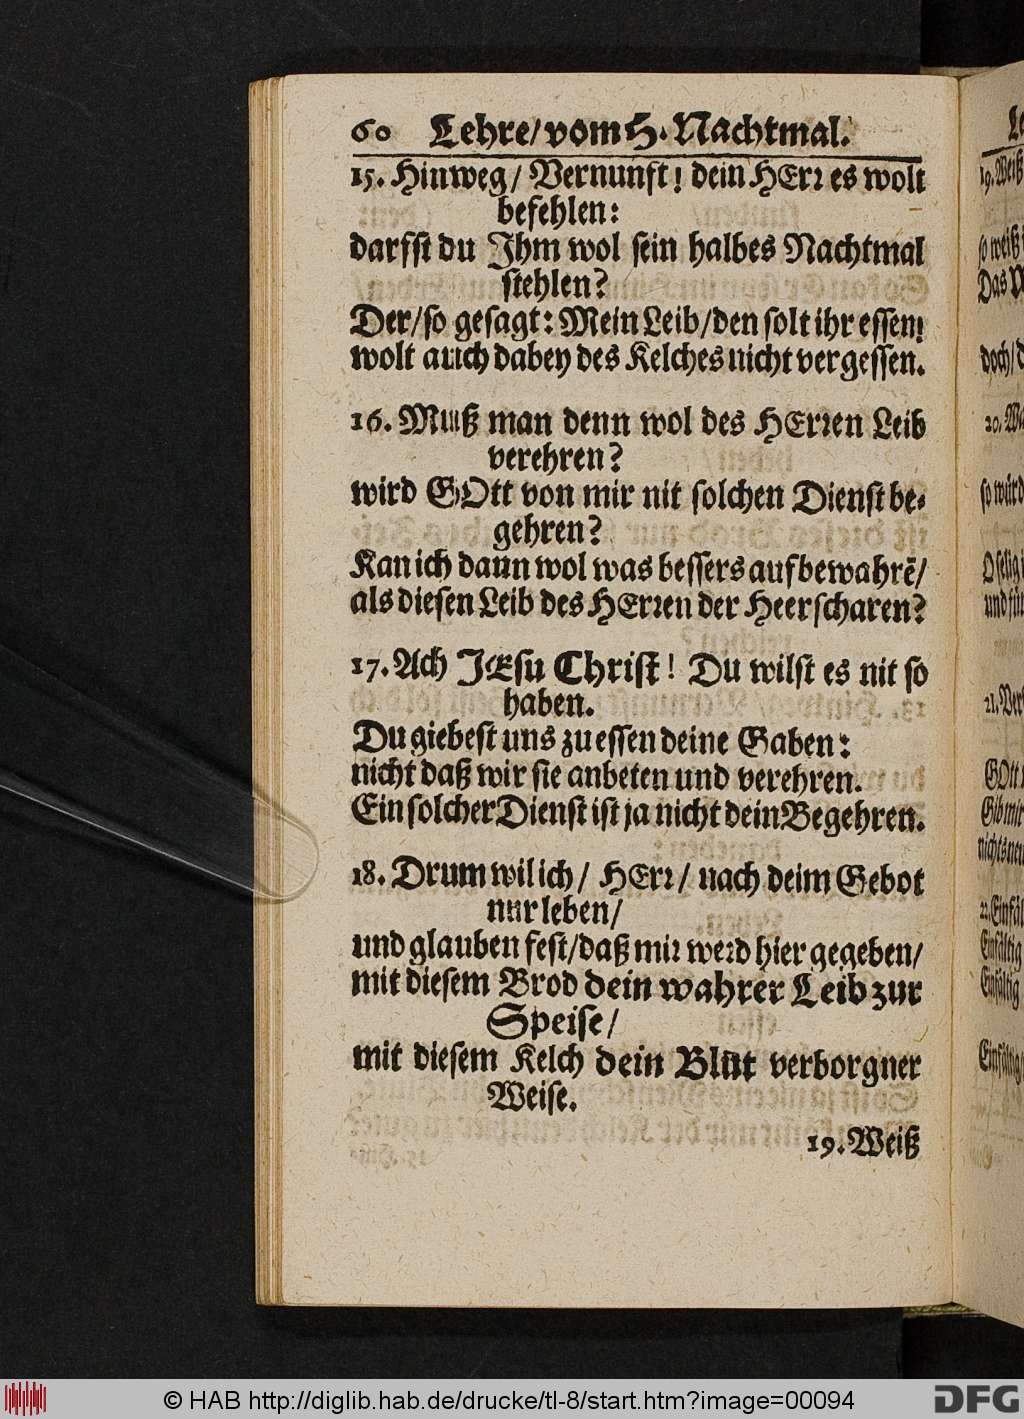 60 Lehre/ vom H. Nachtmal.
15. Hinweg/ Vernunft! dein HErr es wolt
befehlen:
darffst du Ihm wol sein halbes Nachtmal
stehlen?
Der/ so gesagt: Mein Leib/ den solt ihr essen!
wolt auch dabey des Kelches nicht vergessen.
16. Muß man denn wol des HErren Leib
verehren?
wird GOtt von mir nit solchen Dienst be-
gehren?
Kan ich dann wol was bessers aufbewahrē/
als diesen Leib des HErren der Heerscharen?
17. Ach JEsu Christ! Du wilst es nit so
haben.
Du giebest uns zu essen deine Gaben:
nicht daß wir sie anbeten und verehren.
Ein solcher Dienst ist ja nicht dein Begehren.
18. Drum wil ich/ HErr/ nach deim Gebot
nur leben/
und glauben fest/ daß mir werd hier gegeben/
mit diesem Brod dein wahrer Leib zur
Speise/
mit diesem Kelch dein Blut verborgner
Weise.
19. Weiß
19. Weiß
so weiß
doch/
so würd
O selig
und für
GOtt
Gib mir
Einfältig
Einfältig
Einfältig
© HAB http://diglib.hab.de/drucke/tl-8/start.htm?image=00094
DFG